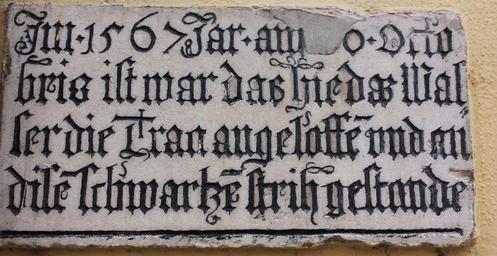 Im · 1567 Jar · am 0 · Octo
bris ist war das hie das Was
ser die Trag angeloffē vnd an
disē schwartzē strih gestande